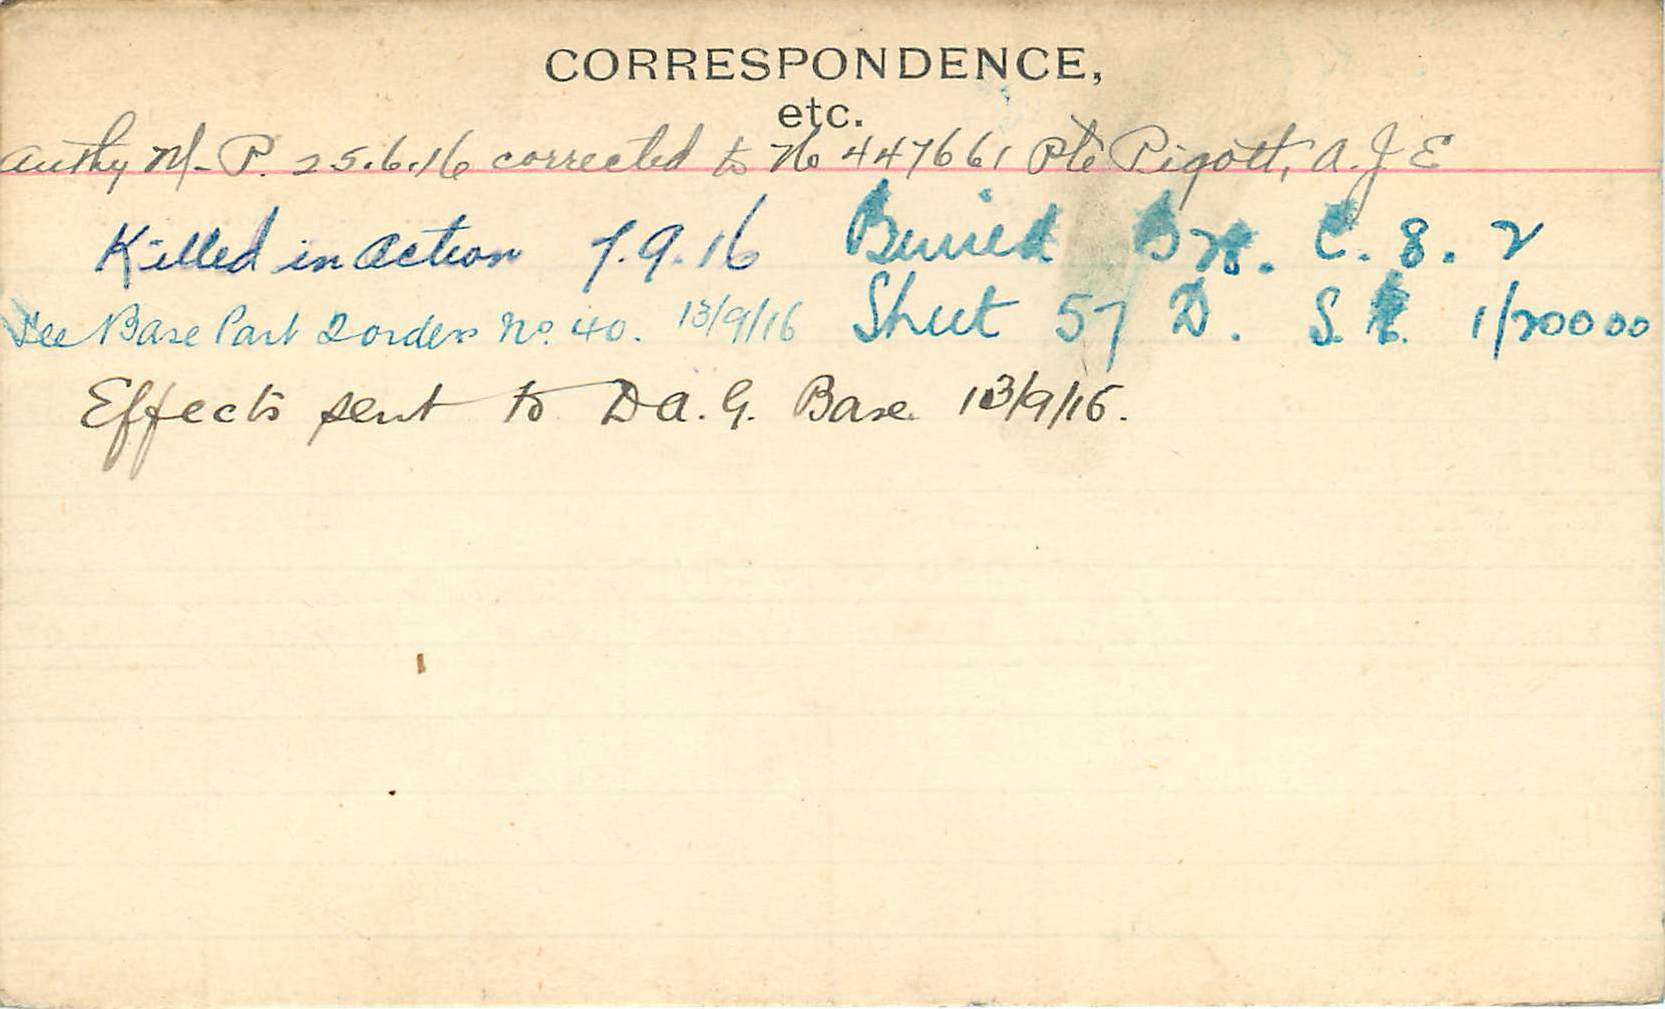 CORRESPONDENCE,
etc.
Authy M-P. 25.6.16 corrected to No 447661 Pte Pigott, A.J E
Killed in action 7.9.16 Buried C. 8. 2
See Base Part 2 orders No. 40. 13/9/16 Sheet 57 D. S. E. 1/20000
Effects sent to D A. G. Base 13/9/16.